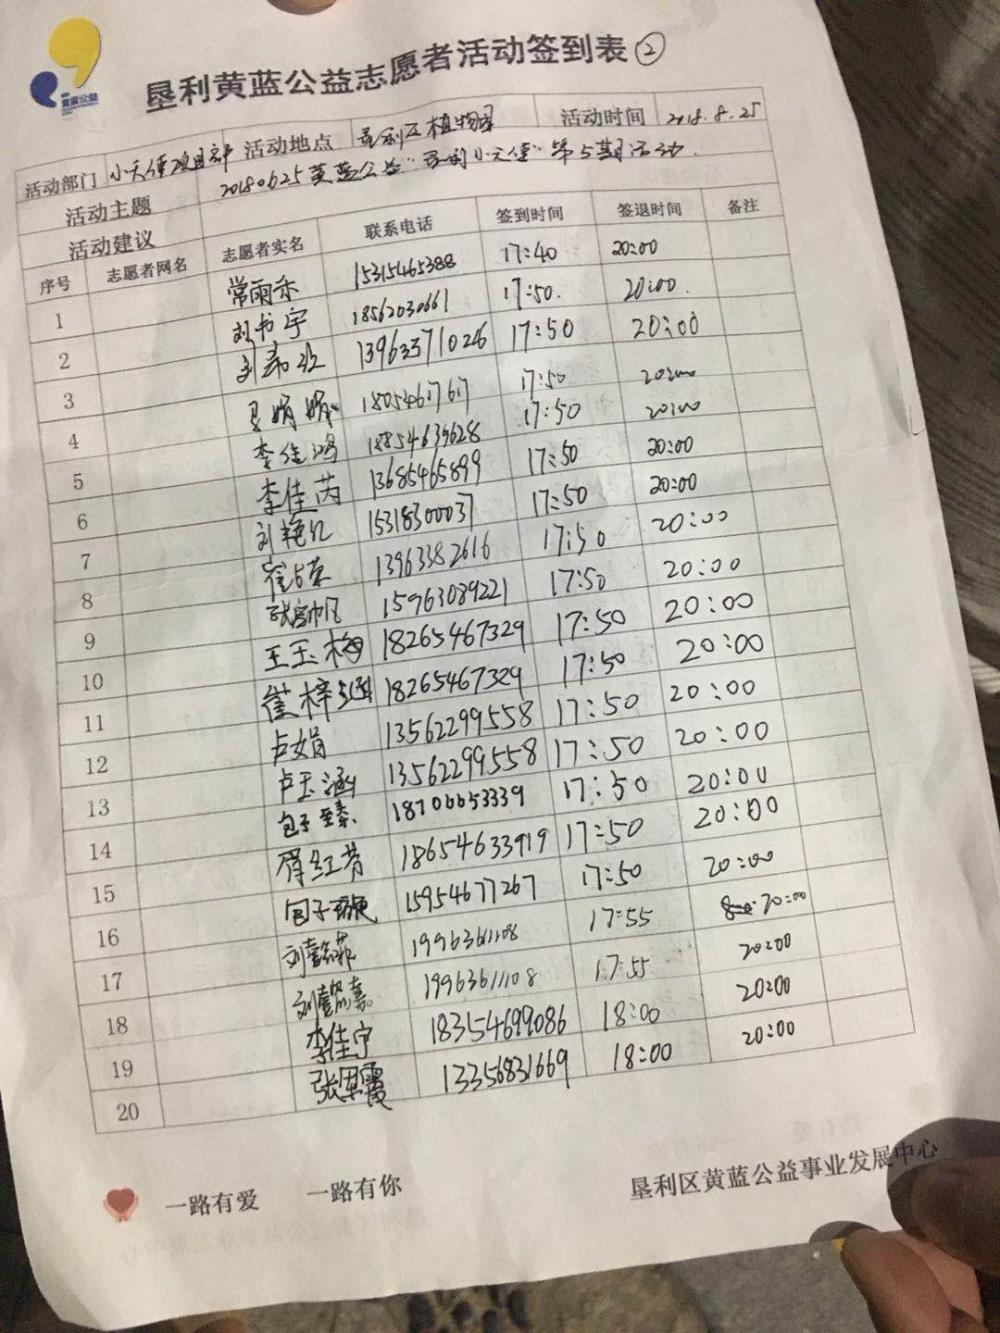 黄蓝公益
垦利黄蓝公益志愿者活动签到表 ②
活动部门 小天使项目部 活动地点 垦利区植物园 活动时间 2018.8.25
活动主题 20180825黄蓝公益"垦利小天使"第5期活动
活动建议
序号 志愿者网名 志愿者实名 联系电话 签到时间 签退时间 备注
1 常雨禾 15315465388 17:40 20:00
2 刘书宇 18562030661 17:50. 20:00.
3 13963371026 17:50 20:00
4 娟娟 1805461767 17:50 20:00
5 李佳鸿 18854639628 17:50 20:00
6 李佳芮 13685465899 17:50 20:00
7 刘艳 15318300037 17:50 20:00
8 崔占荣 13963382616 17:50 20:00
9 张富帆 15963089221 17:50 20:00
10 王玉梅 18265467329 17:50 20:00
11 崔梓涵 18265467329 17:50 20:00
12 卢娟 13562299558 17:50 20:00
13 卢玉涵 13562299558 17:50 20:00
14 包子臻 18706653339 17:50 20:00
15 胥红芳 18654633919 17:50 20:00
16 包子璇 15954677267 17:50 20:00
17 刘懿菲 19963611108 17:55 20:00
18 刘懿嘉 19963611108 17:55 20:00
19 李佳宁 18354699086 18:00 20:00
20 张军霞 13356831669 18:00 20:00
一路有爱 一路有你 垦利区黄蓝公益事业发展中心